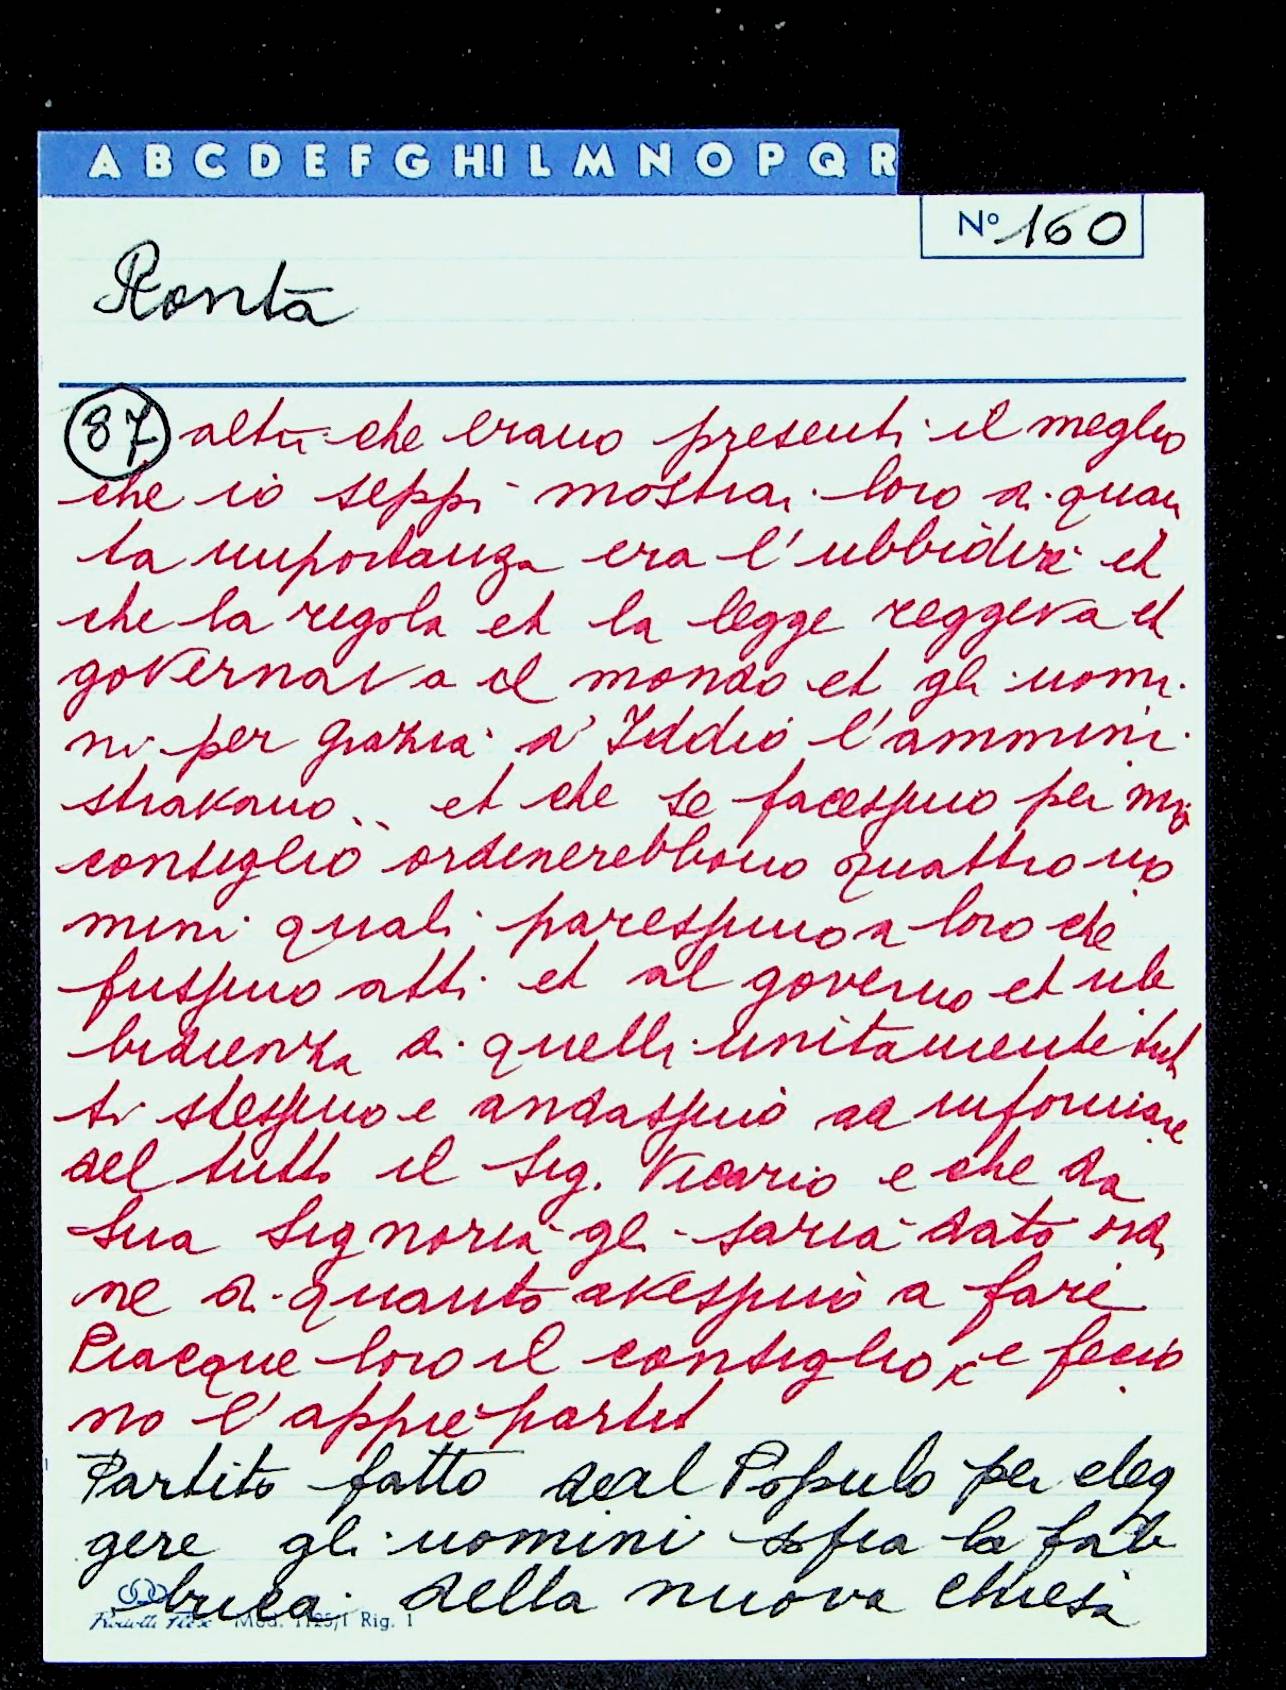 A B C D E F G HI L M N O P Q R
Nº 160
Ronta
87 altri che erano presenti il meglio
che io seppi mostrai loro di quan
ta importanza era l'ubbidire et
che la regola et la legge reggeva et
governava il mondo et gli uomi
ni per grazia d'Iddio l'ammini
stravano.. et che se facessino per mio
consiglio ordinerebbono quattro uo
mini quali paressino a loro che
fussino atti et al governo et ub
bidienza di quelli unitamente tut
ti stessino e andassino ad informare
del tutto il Sig. Vicario e che da
Sua Signoria gli saria dato ordi
ne di quanto avessino a fare
Piacque loro il consiglio, e fecio
no l'appiè partit
Partito fatto deal Populo per eleg
gere gli uomini sopra la fab
brica della nuova chiesa
Mod. 1125/1 Rig. 1